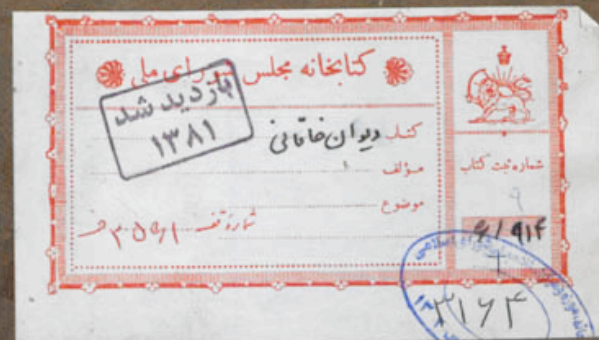 کتابخانه مجلس شورای ملی
بازدید شد
۱۳۸۱
کتاب دیوان خاقانی
مؤلف
موضوع
شماره قفسه
شماره ثبت کتاب
۳۱۶۴